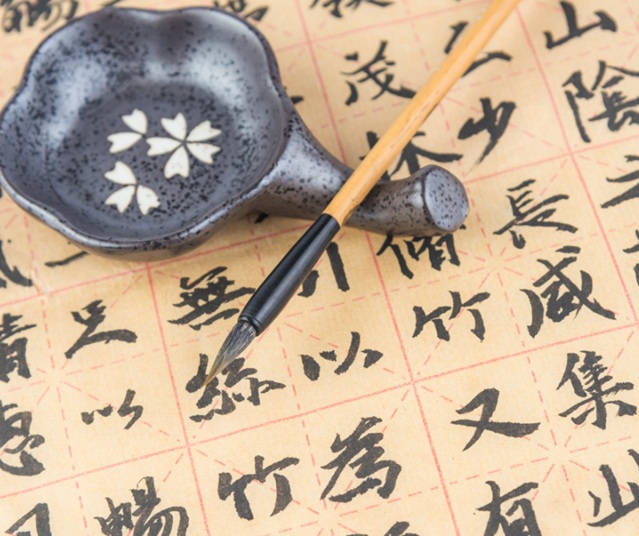 山陰
少長咸集
茂林脩竹又有
引以為
無絲竹
足以暢
清惠